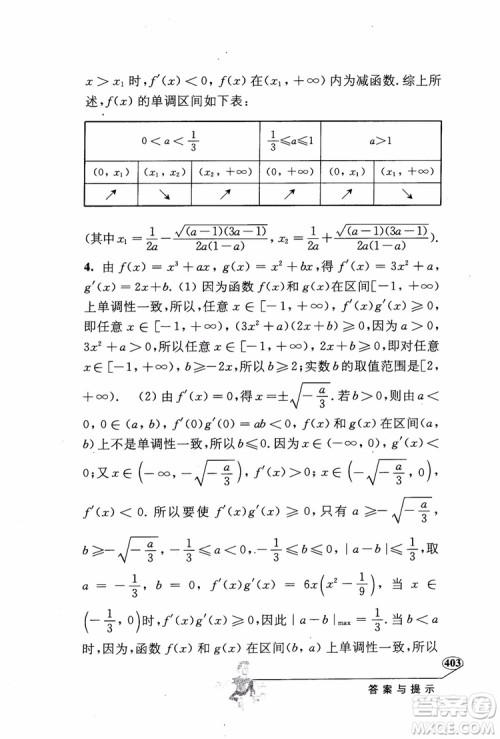 x＞x₁时，f′(x)＜0，f(x)在(x₁，＋∞)内为减函数.综上所
述，f(x)的单调区间如下表：
0＜a＜1/3 1/3≤a≤1 a＞1
(0，x₁) (x₁，x₂) (x₂，＋∞) (0，＋∞) (0，x₁) (x₁，＋∞)
↗ ↘ ↗ ↗ ↗ ↘
(其中x₁＝1/2a－√((a－1)(3a－1))/2a(1－a)，x₂＝1/2a＋√((a－1)(3a－1))/2a(1－a)).
4. 由f(x)＝x³＋ax，g(x)＝x²＋bx，得f′(x)＝3x²＋a，
g′(x)＝2x＋b. (1) 因为函数f(x)和g(x)在区间[－1，＋∞)
上单调性一致，所以，任意x∈[－1，＋∞)，f′(x)g′(x)≥0，
即任意x∈[－1，＋∞)，(3x²＋a)(2x＋b)≥0，因为a＞0，
3x²＋a＞0，所以，任意x∈[－1，＋∞)，2x＋b≥0，即任意
x∈[－1，＋∞)，b≥－2x，所以，b≥2；实数b的取值范围是[2，
＋∞). (2) 由f′(x)＝0，得x＝±√(－a/3). 若b＞0，则由a＜
0，0∈(a，b)，f′(0)g′(0)＝ab＜0，f(x)和g(x)在区间(a，b)
上不是单调性一致，所以b≤
0；又x∈(－∞，－√(－a/3))时，f′(x)＞0；x∈(－√(－a/3)，0)时，
f′(x)＜0. 所以要使f′(x)g′(x)≥0，只有a≥－√(－a/3)，
b≥－√(－a/3)，－1/3≤a≤0，－1/3≤b≤0，|a－b|≤1/3. 取
a＝－1/3，b＝0，f′(x)g′(x)＝6x(x²－1/9)，当x∈
(－1/3，0)时，f′(x)g′(x)＞0，因此|a－b|max＝1/3. 当b＜a
时，因为，函数f(x)和g(x)在区间(b，a)上单调性一致，所以
403
答案与提示